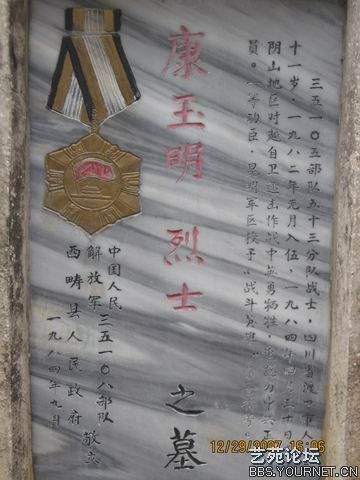 三五一〇五部队五十三分队战士，四川省渡口市人，
十一岁，一九八二年元月入伍，一九八四年四月三十日
阴山地区对越自卫还击作战中英勇牺牲，
员。一等功臣，昆明军区授予"战斗英雄"
康玉明 烈士 之墓
中国人民
解放军
三五一〇八部队
西畴县人民政府
敬立
一九八四年九月
12/29/2007 16:06
艺苑论坛
BBS.YOURNET.CN